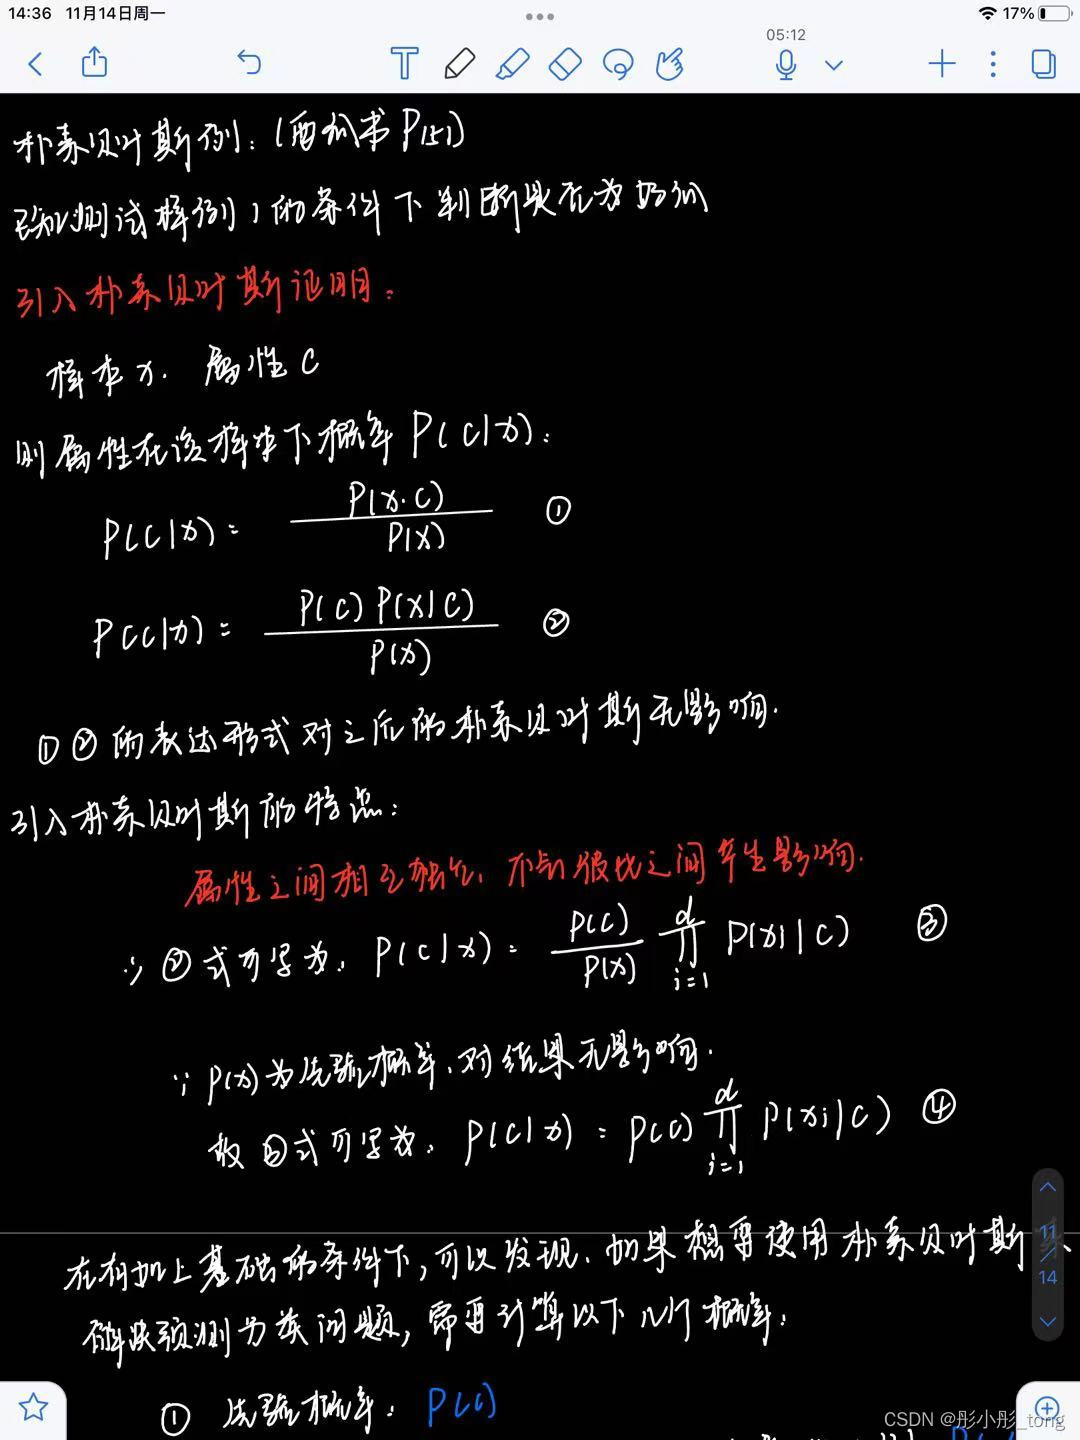 14:36 11月14日周一
17%
05:12
朴素贝叶斯例:(西瓜书P151)
已知测试样例1的条件下判断是否为好瓜
引入朴素贝叶斯证明:
样本x. 属性C
则属性在该样本下概率P(C|x):
P(C|x)= P(x·C) / P(X) ①
P(C|x)= P(C)P(X|C) / P(x) ②
①②的表达形式对之后的朴素贝叶斯无影响.
引入朴素贝叶斯的特点:
属性之间相互独立、不会彼此之间产生影响.
∴②式可写为: P(C|x)= P(C)/P(x) ∏ d i=1 P(xi|C) ③
∵P(x)为先验概率、对结果无影响.
故③式可写为: P(C|x)=P(C) ∏ d i=1 P(xi|C) ④
在有如上基础的条件下,可以发现、如果想要使用朴素贝叶斯
解决预测分类问题,需要计算以下几个概率:
① 先验概率: P(C)
11
14
CSDN @彤小彤_tong